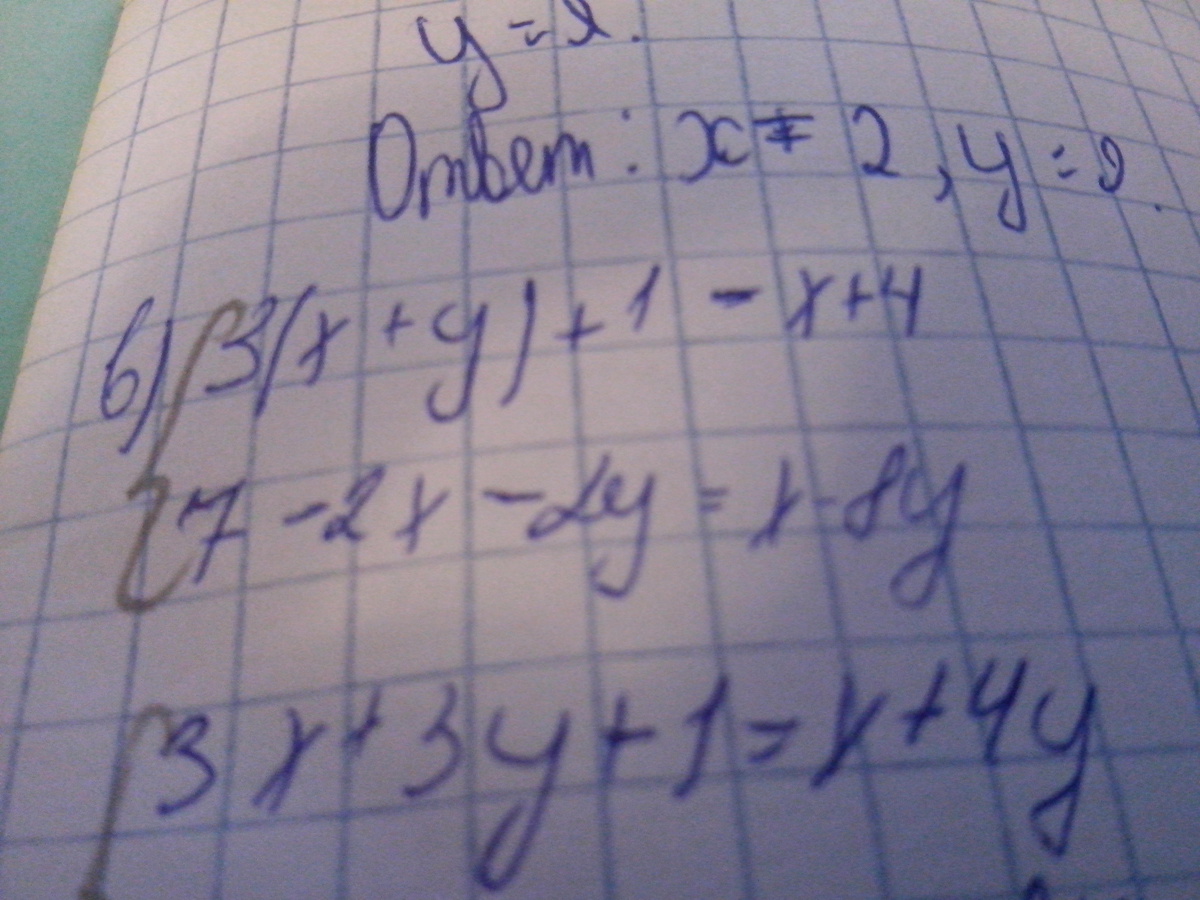 y = 2.
Ответ: x = 2, y = 2.
б) 3(x + y) + 1 - x + 4
7 - 2x - 2y = x - 8y
3x + 3y + 1 = x + 4y